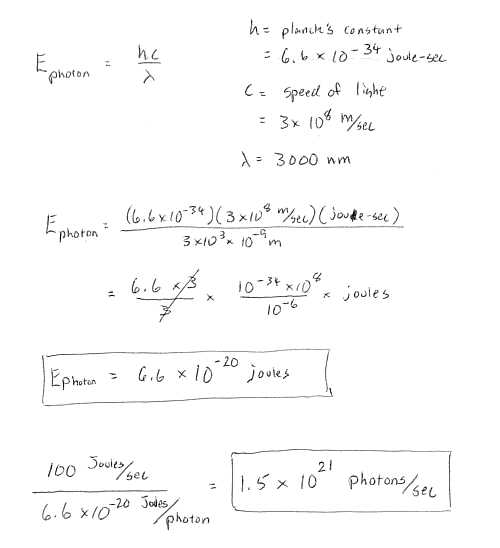 h = planck's constant
= 6.6 × 10⁻³⁴ joule-sec
E photon = hc / λ
c = speed of light
= 3 × 10⁸ m/sec
λ = 3000 nm
E photon = (6.6 × 10⁻³⁴)(3 × 10⁸ m/sec)(joule-sec) / 3 × 10³ × 10⁻⁹ m
= 6.6 × 3 / 3 × 10⁻³⁴ × 10⁸ / 10⁻⁶ × joules
E photon = 6.6 × 10⁻²⁰ joules
100 Joules/sec / 6.6 × 10⁻²⁰ Joules/photon = 1.5 × 10²¹ photons/sec